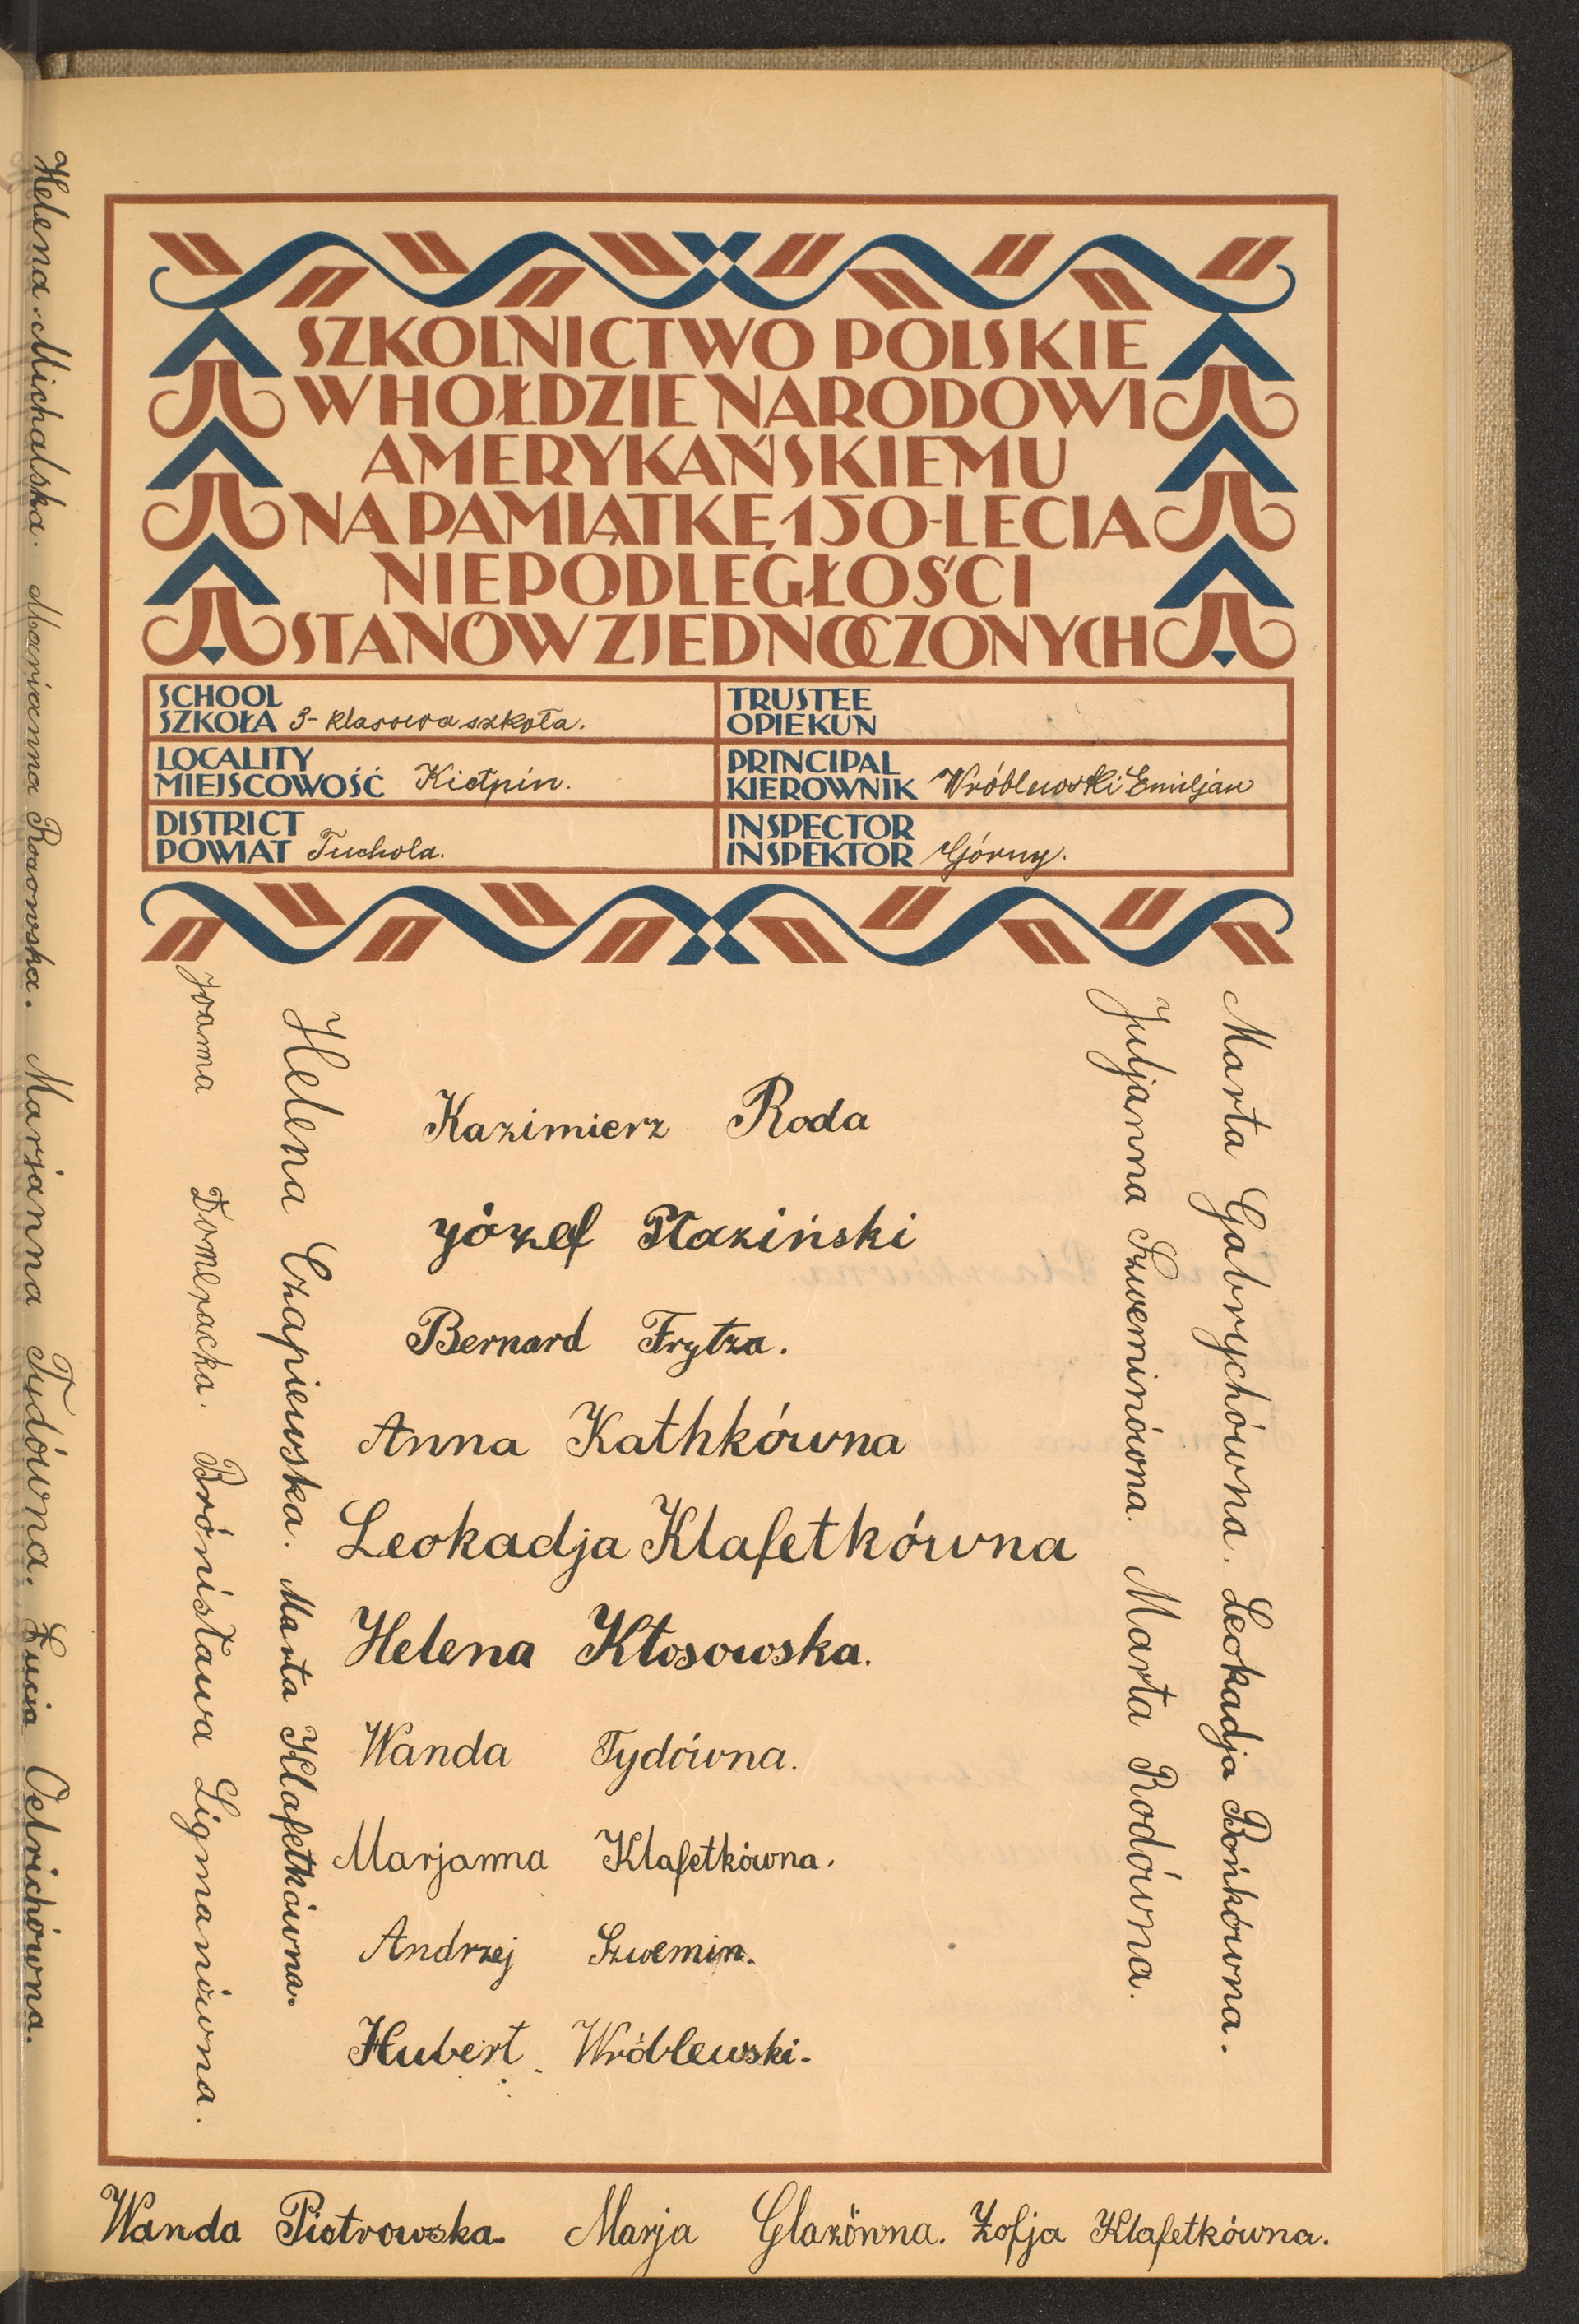 SZKOLNICTWO POLSKIE
W HOŁDZIE NARODOWI
AMERYKAŃSKIEMU
NA PAMIĄTKĘ 150-LECIA
NIEPODLEGŁOŚCI
STANÓW ZJEDNOCZONYCH
SCHOOL
SZKOŁA 3-klasowa szkoła.
TRUSTEE
OPIEKUN
LOCALITY
MIEJSCOWOŚĆ Kiełpin.
PRINCIPAL
KIEROWNIK Wróblewski Emiljan
DISTRICT
POWIAT Tuchola.
INSPECTOR
INSPEKTOR Górny.
Kazimierz Roda
Józef Płaziński
Bernard Frytza.
Anna Kathkówna
Leokadja Klafetkówna
Helena Kłosowska.
Wanda Tydówna.
Marjanna Klafetkówna.
Andrzej Szwemin.
Hubert Wróblewski.
Marta Gabrychówna. Leokadja Bońkówna.
Juljanna Szweminówna. Marta Rodówna.
Helena Czapiewska. Marta Klafetkówna.
Joanna Bronisława Ligmanówna.
Helena Michalska. Marianna Marjanna Tydówna. Łucja
Wanda Piotrowska. Marja Glazówna. Zofja Klafetkówna.